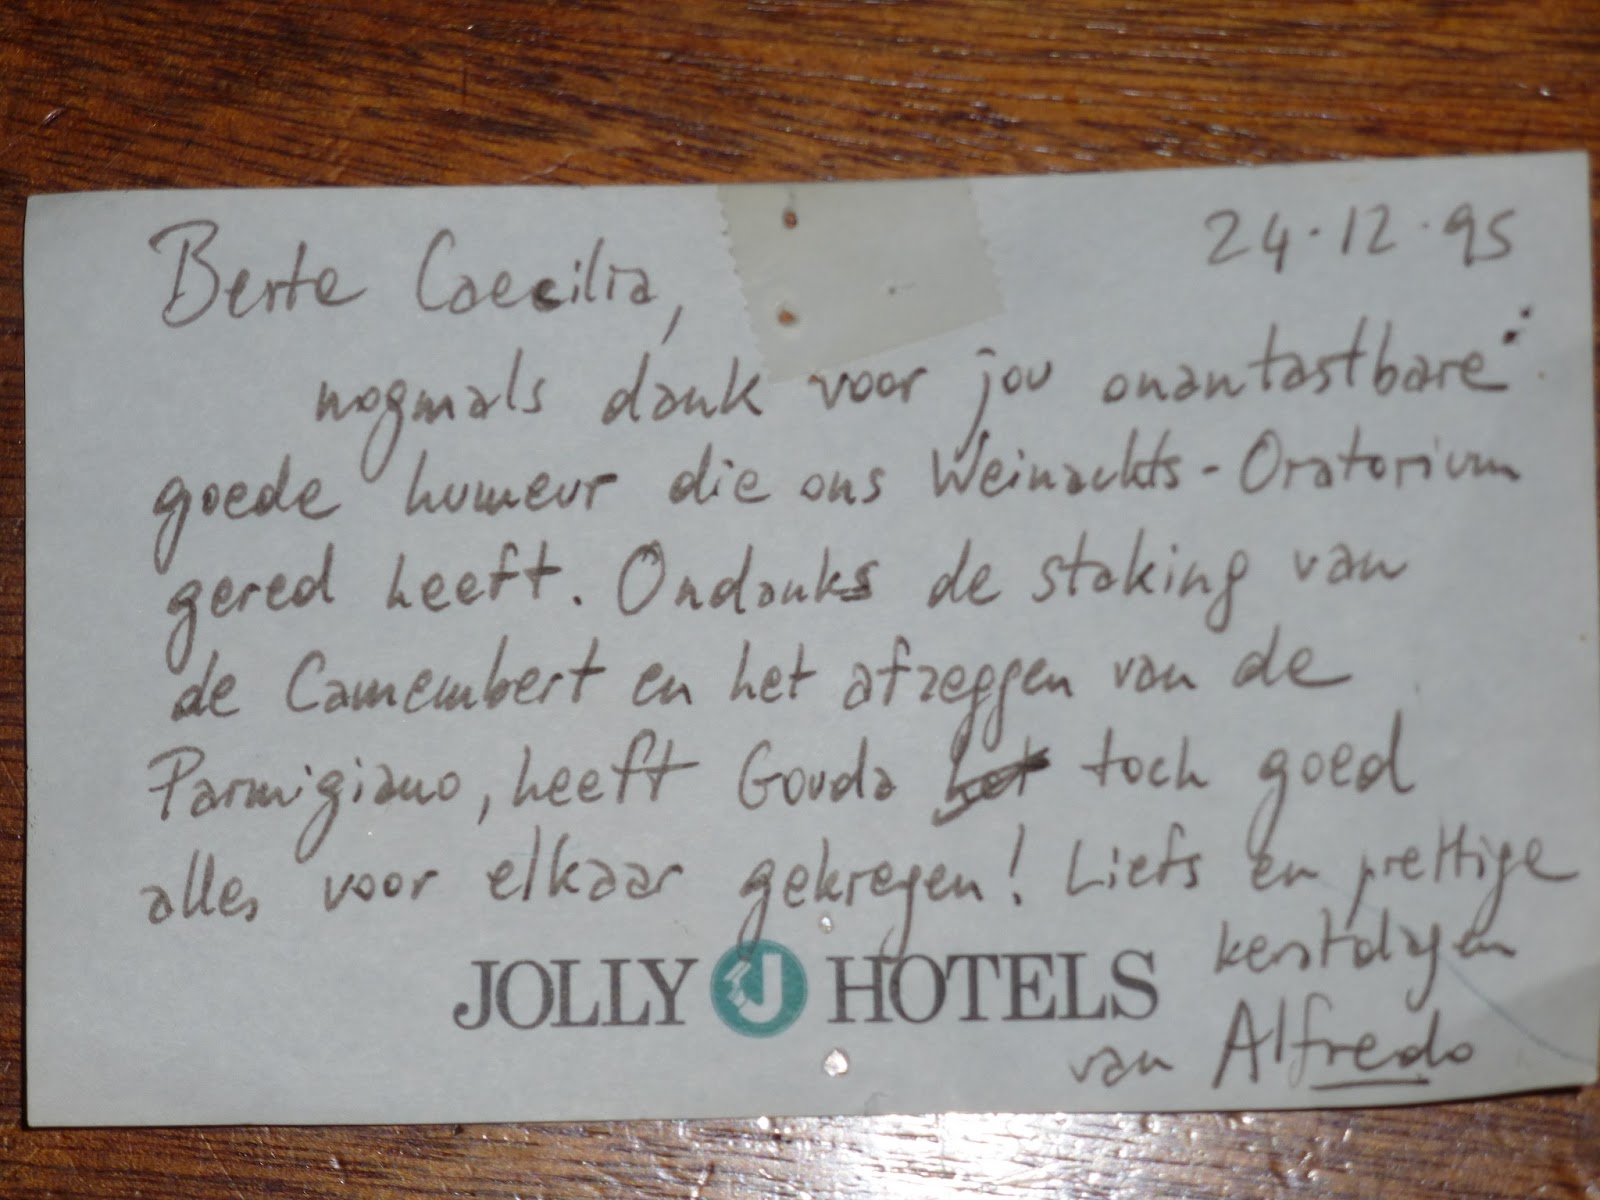 24.12.95
Berte Caecilia,
nogmals dank voor jou onantastbare
goede humeur die ons Weinachts-Oratorium
gered heeft. Ondanks de staking van
de Camembert en het afzeggen van de
Parmigiano, heeft Gouda het toch goed
alles voor elkaar gekregen! Liefs en prettige
kerstdagen
JOLLY J HOTELS
van Alfredo